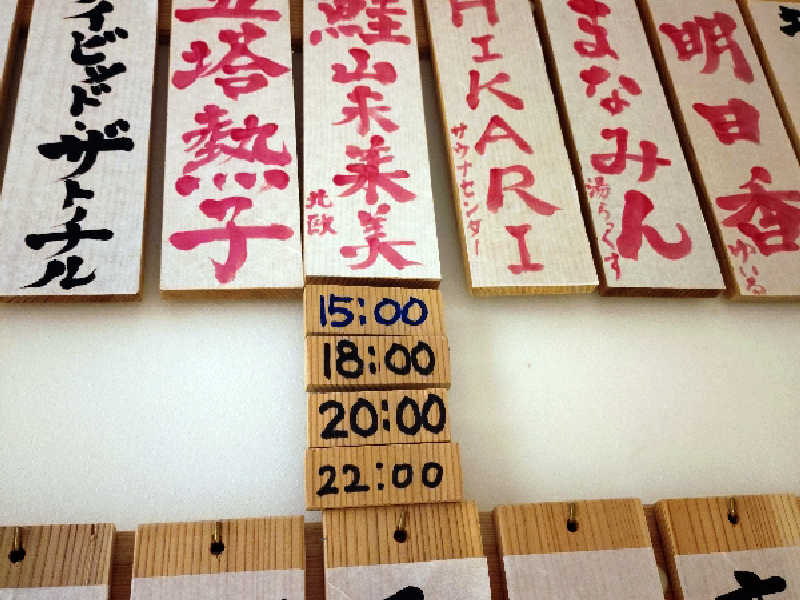 イビッド・ザトナル
五塔熱子
鮭山未菜美
北欧
HIKARI
サウナセンター
まなみん
湯らっくす
明日香
ゆいる
15:00
18:00
20:00
22:00